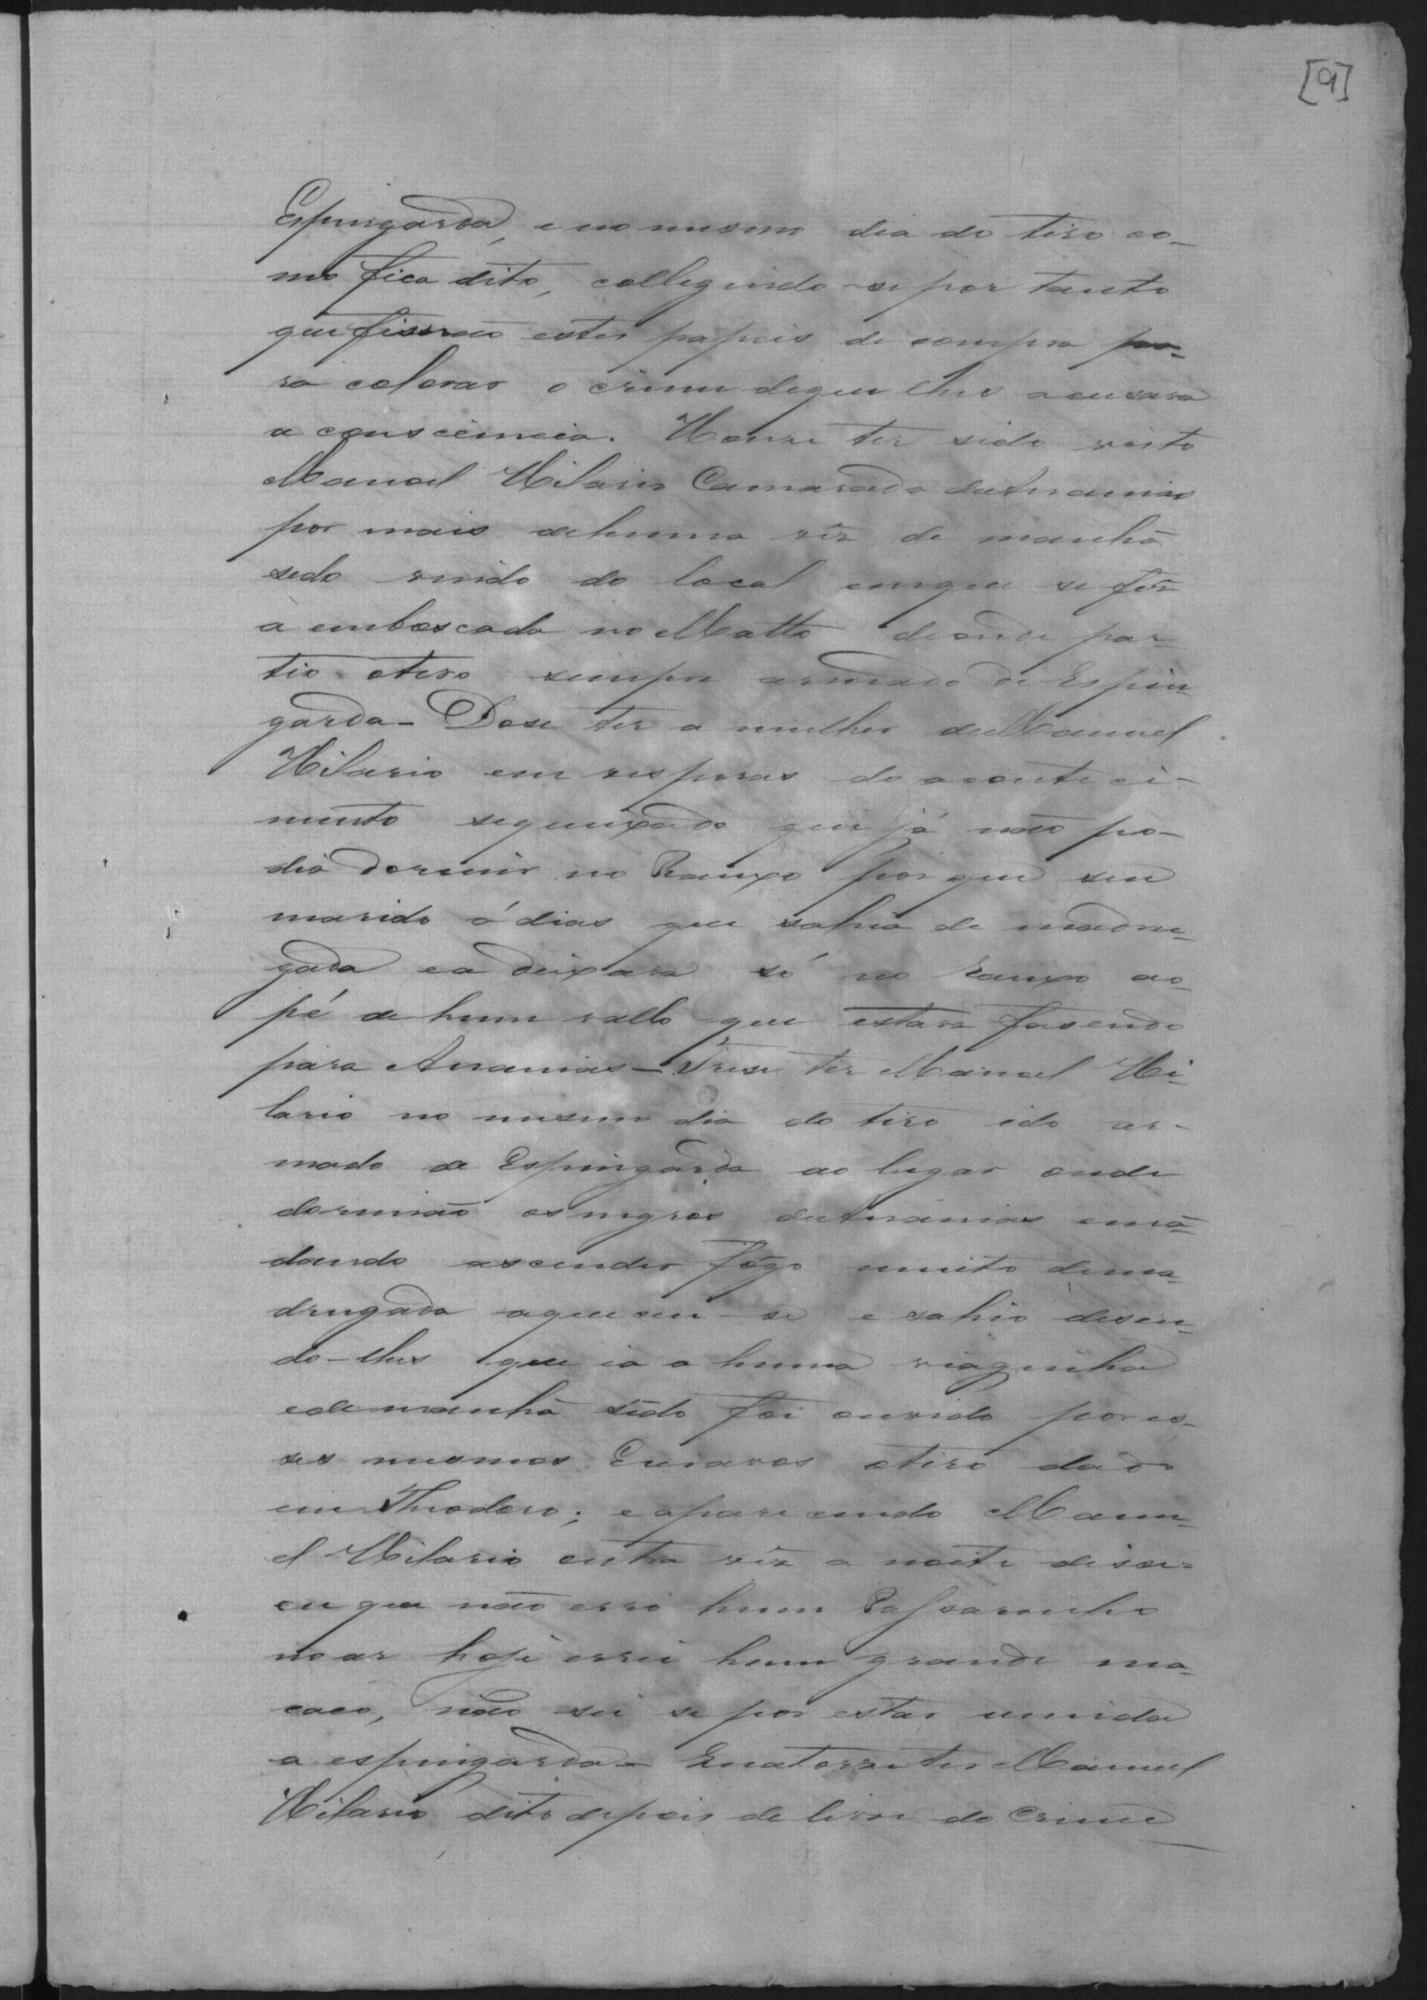 [9]
Espingarda, e no mesmo dia do tiro co-
mo fica dito, collegindo-se por tanto
que fiserão estes papeis de compra pa-
ra colorar o crime de que lhes acusava
a consciencia. Honze ter sido visto
Manoel Hilario Camarada de Ananias
por mais de huma vêz de manhã
sedo vindo do local em que se fêz
a emboscada no Matto de onde par-
tio o tiro sempre armado de Espin
garda - Dose ter a mulher de Manuel
Hilario em vesperas do aconteci-
mento se queixado que já não po-
dia dormir no Ranxo por que seu
marido á dias que sahia de madru-
gada e a deixava só no Ranxo ao
pé de hum vallo que estava fasendo
para Ananias - Trese ter Manoel Hi-
lario no mesmo dia do tiro ido ar-
mado de Espingarda ao lugar onde
dormião os negros de Ananias e mã-
dando ascender fôgo muito de ma-
drugada aqueceu-se e sahio disen-
do-lhes que ia a huma viaginha
e de manhã sêdo foi ouvido por es-
ses mesmos Escravos o tiro dado
em Theodoro; e aparecendo Manu-
el Hilario outra vêz a noite disse =
eu que não erro hum Passarinho
no ar hoje errei hum grande ma-
caco, não sei se por estar umida
a espingarda - Quatorze ter Manuel
Hilario, dito depois de livre do Crime